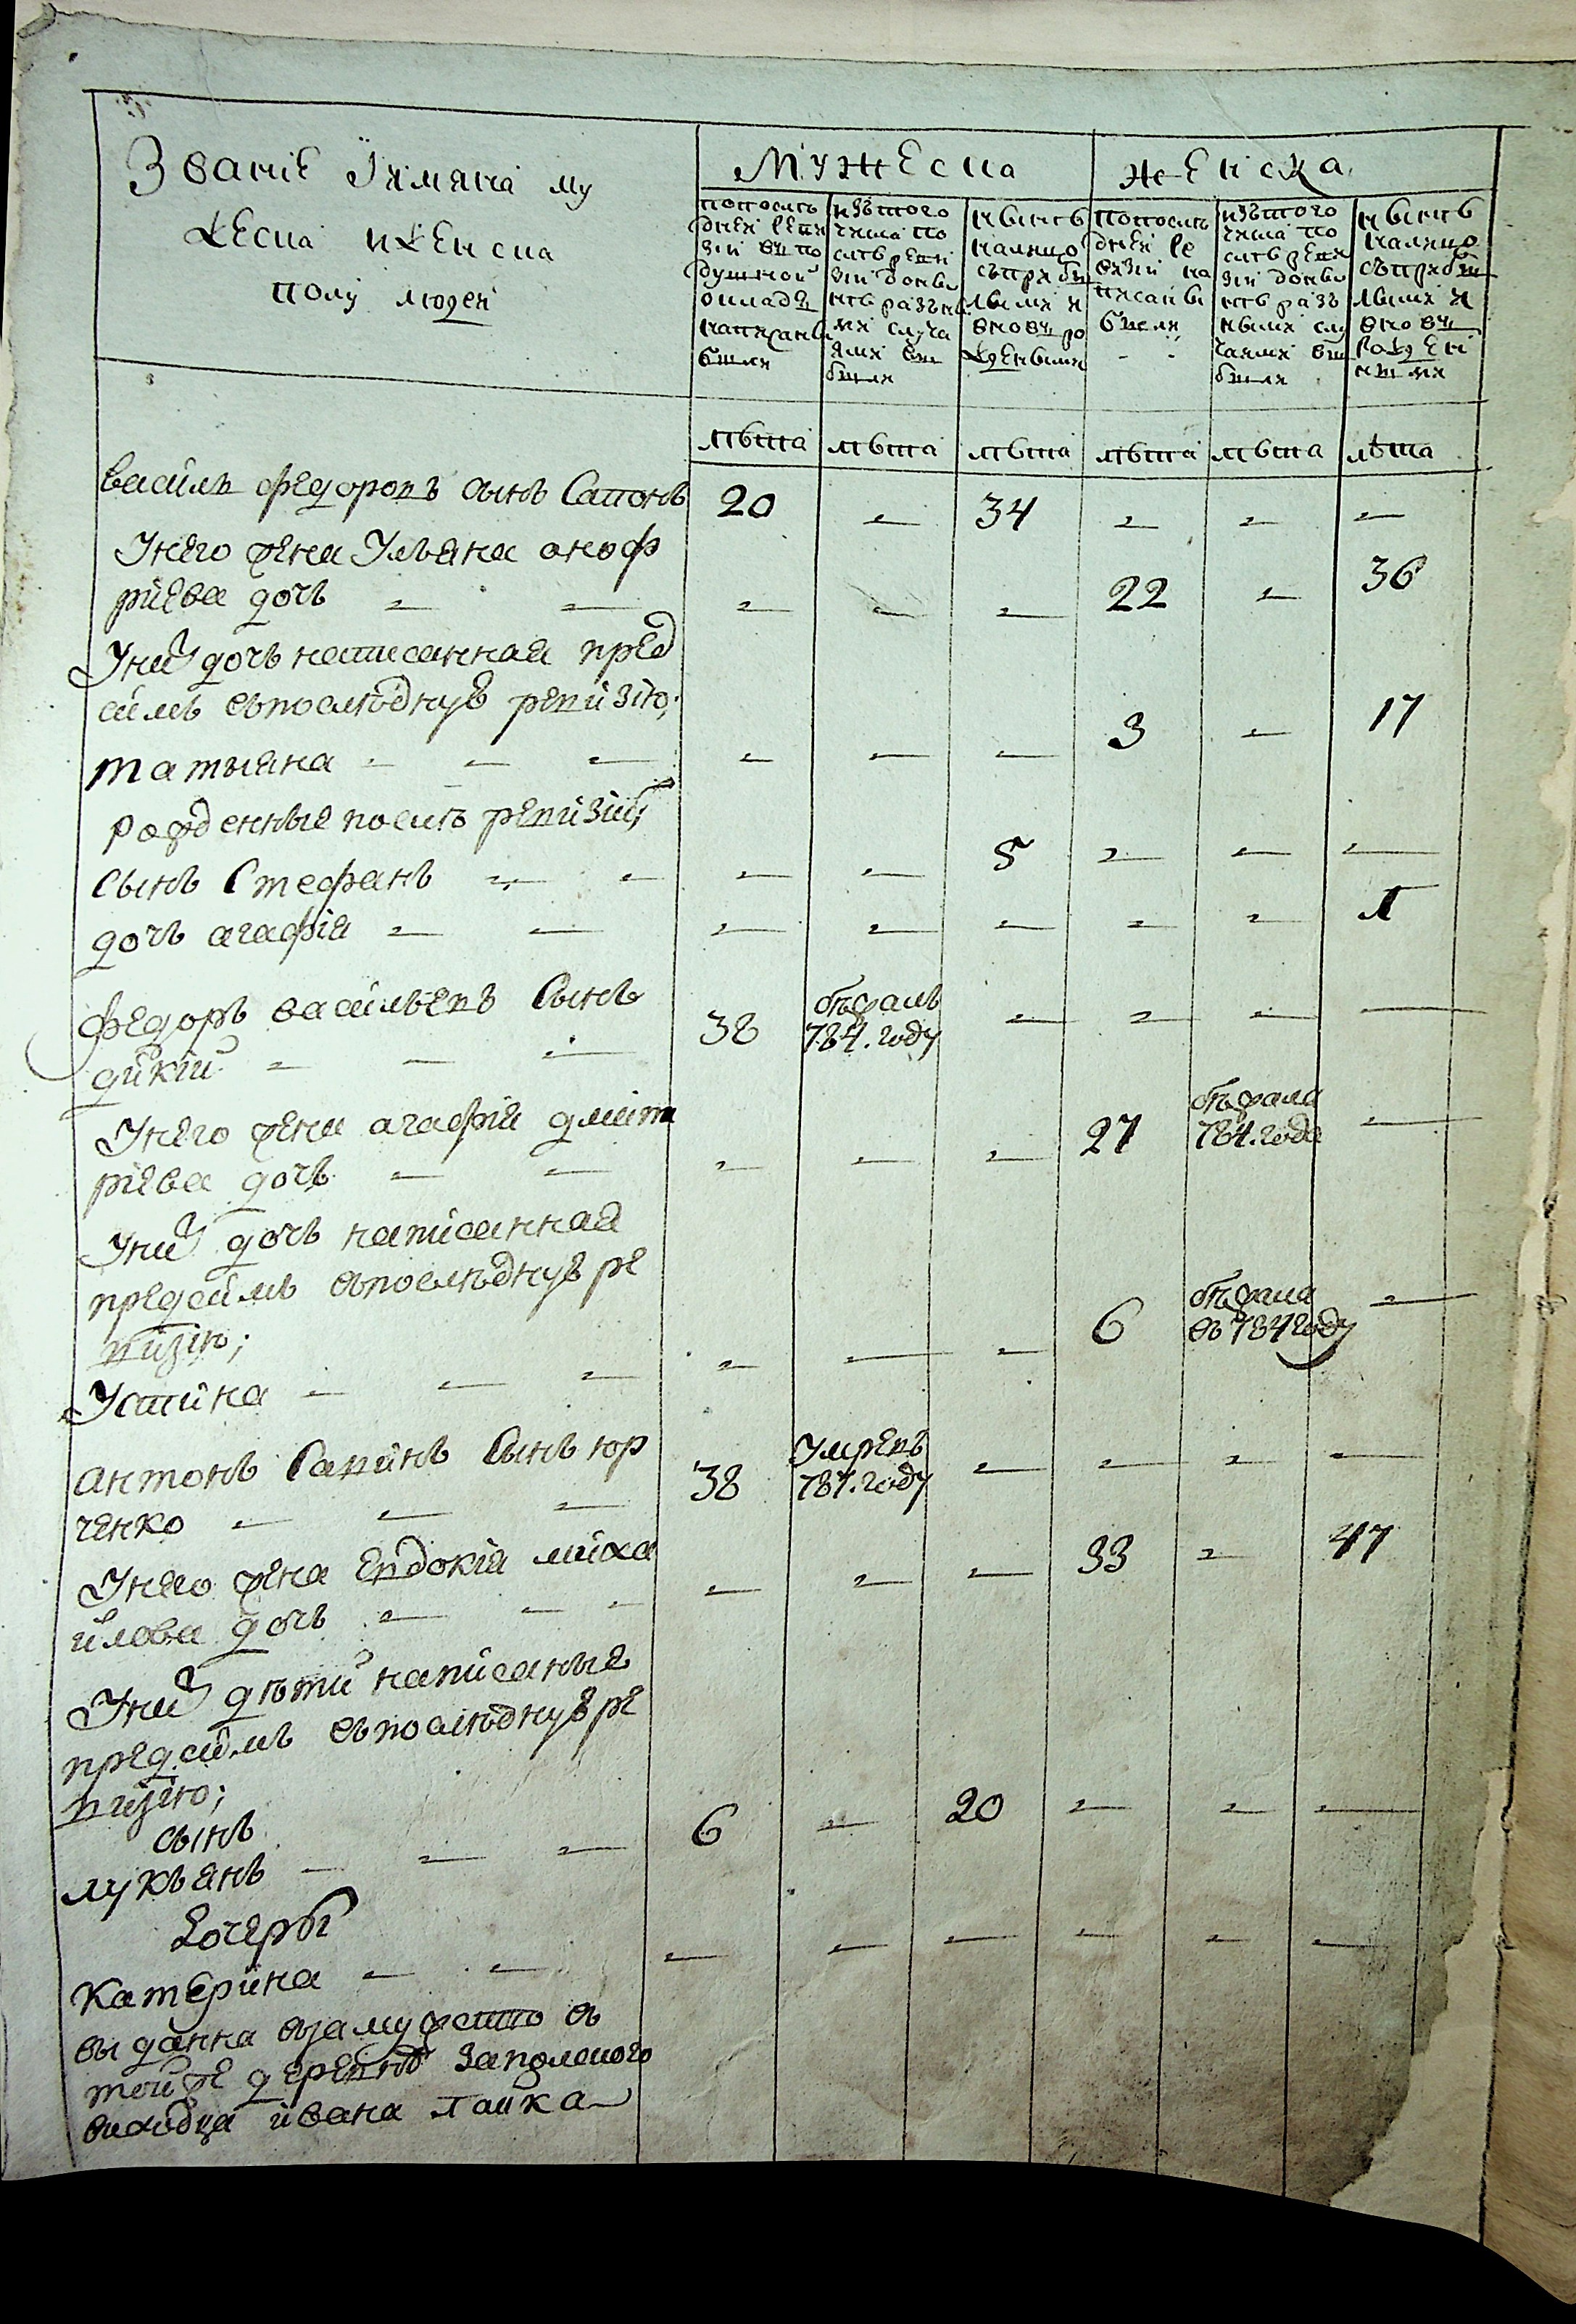 Званіе Їимяна му
жеска иженска
полу людей
Мужеска
женска
попослѣ
дней реви
зіи въ по
душной
окладъ
написаны
были
изътого
числа по
слѣ реви
зіи доны
нѣ разны
ми случа
ями вы
были
нынѣ
налицо
съприбы
лыми и
вновь ро
ждеными
попослѣ
дней ре
визіи на
писаны
были
изътого
числа по
слѣ реви
зіи доны
нѣ раз
ными слу
чаями вы
были
нынѣ
налицо
съприбы
лыми и
вновь
рожден
ными
лѣта лѣта лѣта лѣта лѣта лѣта
василь федоровъ сынъ Сапонъ 20 34
Унего жена Ульяна оноф
ріева дочь 22 36
Уних дочь написанная пред
симъ впослѣднуѣ ревизію;
татьяна 3 17
рожденные послѣ ревизіи;
сынъ Стефанъ 5
дочь агафія 1
федоръ васильевъ сынъ
дикій 38 бѣжалъ
784. году
Унего жена агафія дмит
ріева дочь 27 бѣжала
784. года
Уних дочь написанная
предсимъ впослѣднуѣ ре
визію;
Устина 6 бѣжала
въ 784 году
антонъ Савинъ сынъ юр
ченко 38 Умревъ
787. году
Унего жена Евдокія миха
йлова дочь 33 47
Уних дѣти написаные
предсимъ впослѣднуѣ ре
визію;
сынъ
лукьянъ 6 20
дочеры
катерина
выданна взамужство въ
тойже деревнѣ заполского
виходца ивана лаика